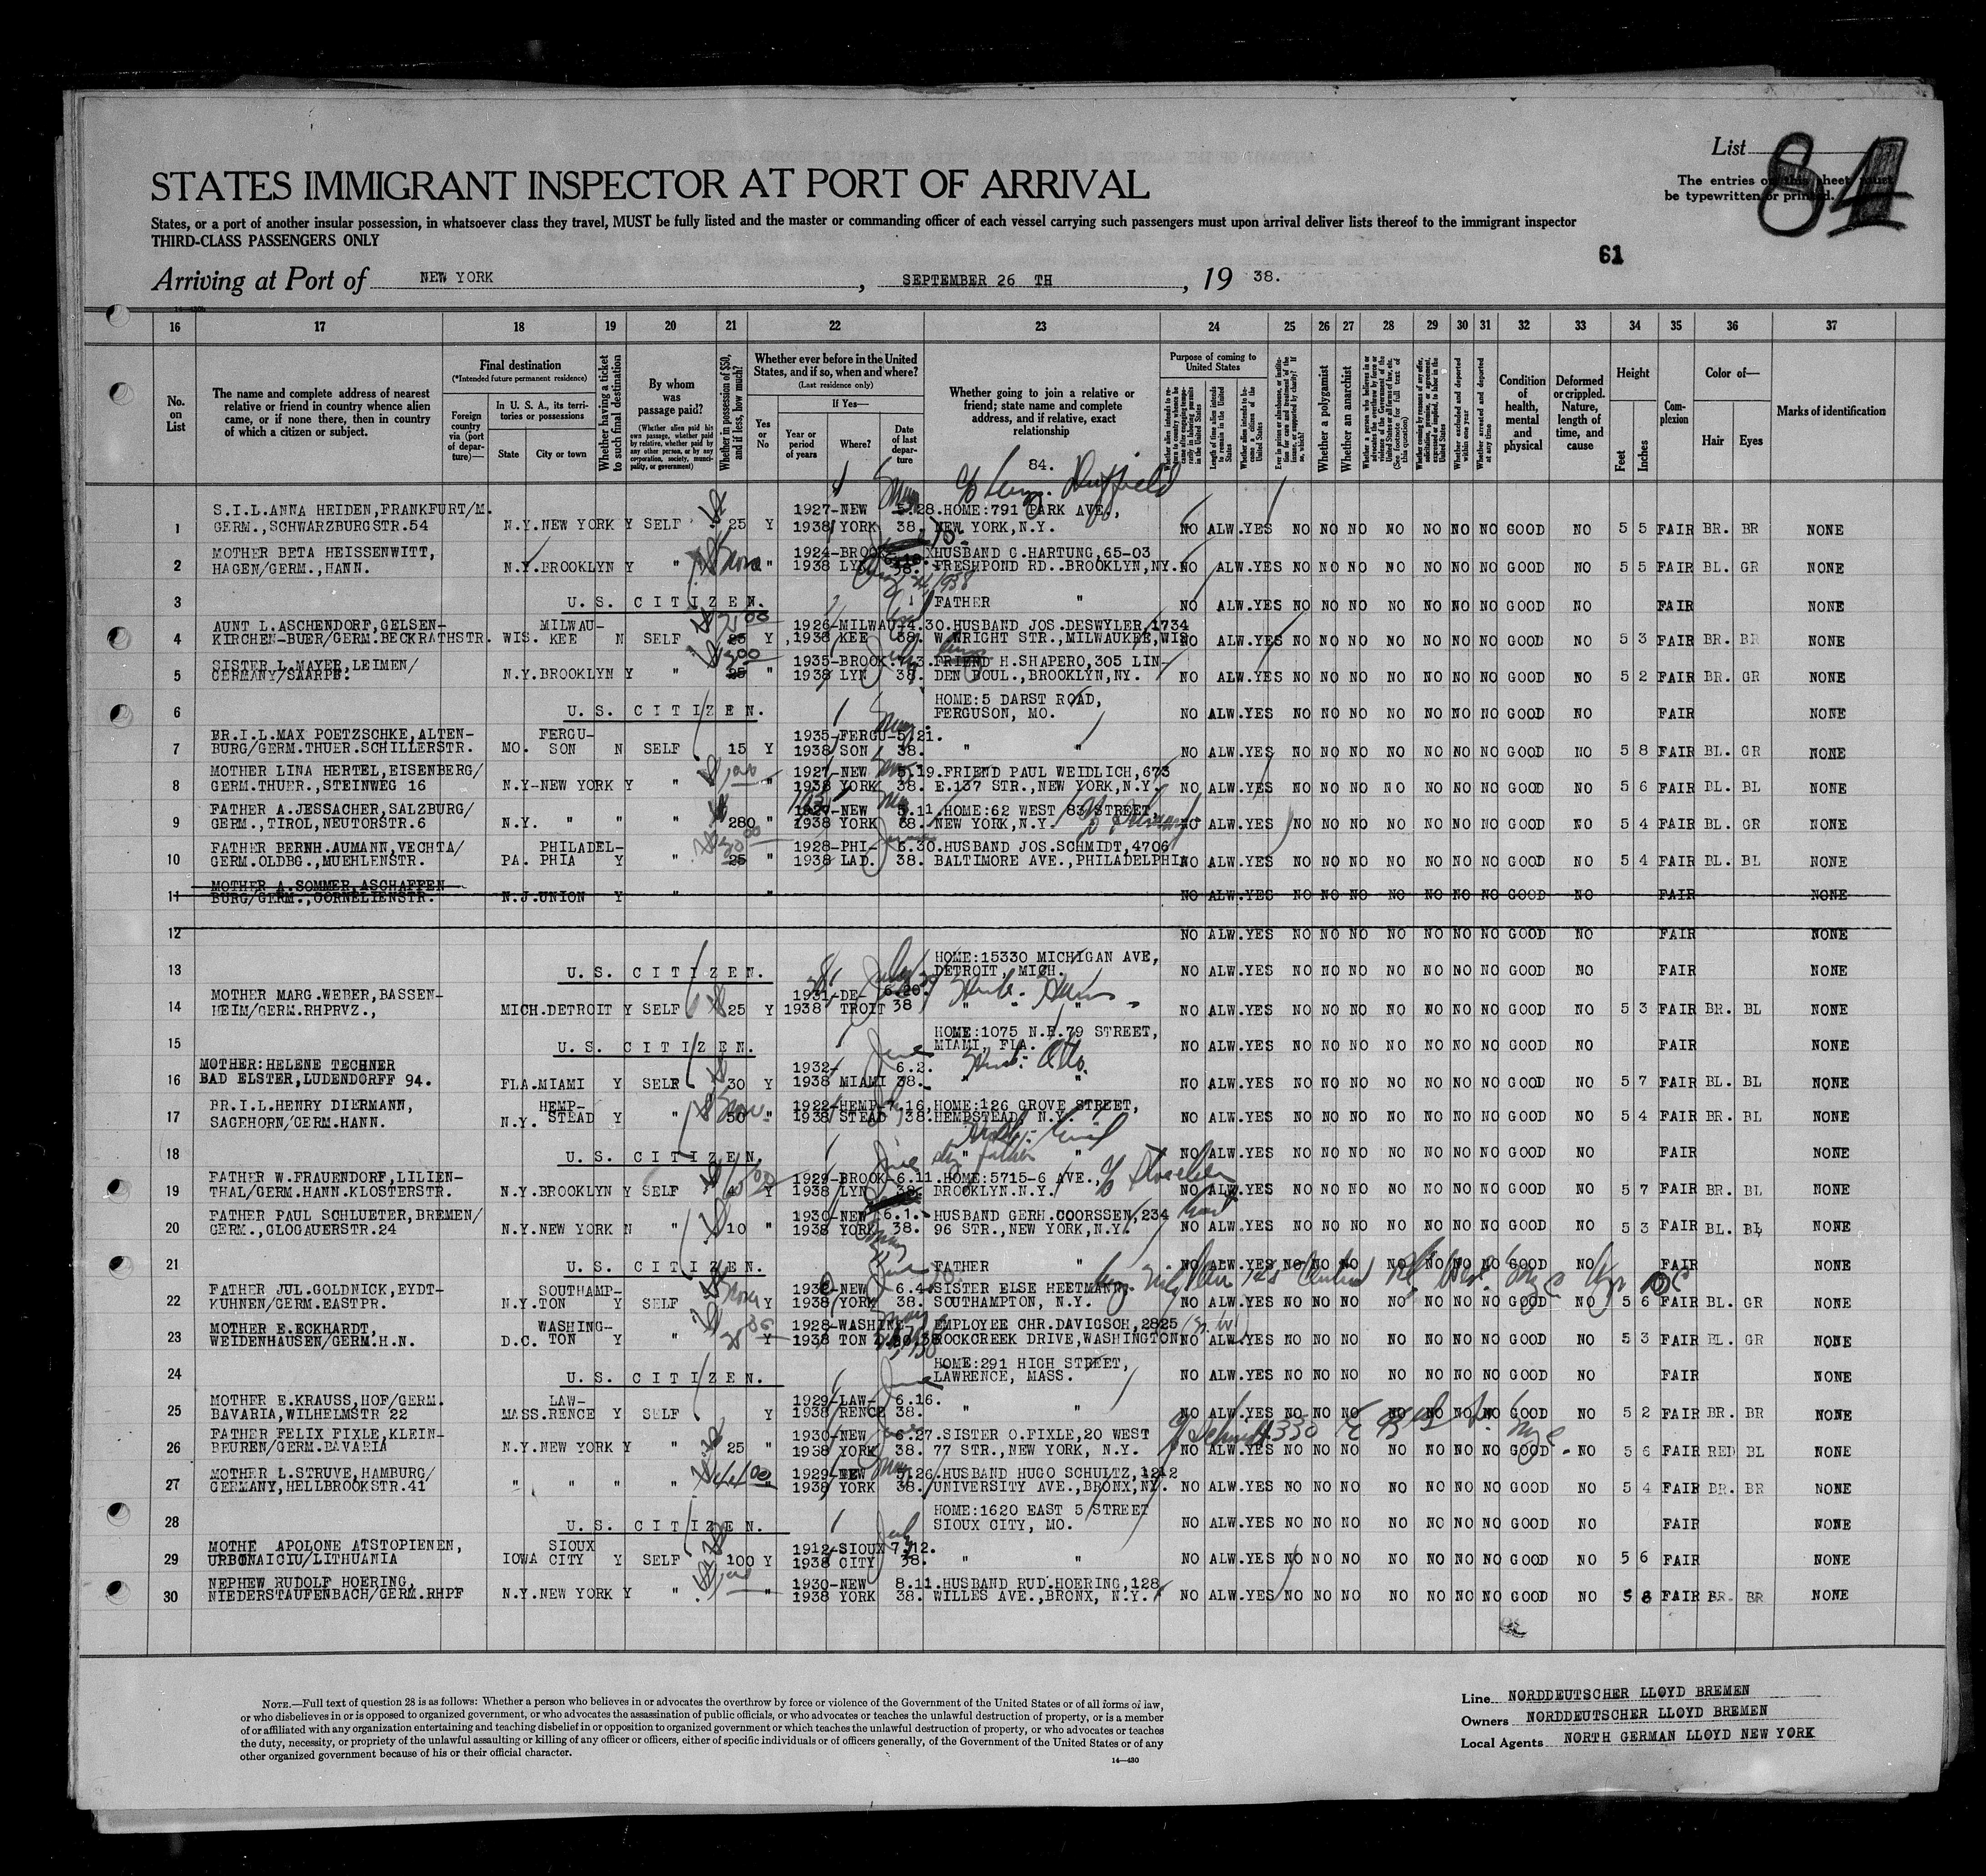 List 84
The entries on this sheet must
be typewritten or printed.
STATES IMMIGRANT INSPECTOR AT PORT OF ARRIVAL
States, or a port of another insular possession, in whatsoever class they travel, MUST be fully listed and the master or commanding officer of each vessel carrying such passengers must upon arrival deliver lists thereof to the immigrant inspector
THIRD-CLASS PASSENGERS ONLY
61
Arriving at Port of NEW YORK, SEPTEMBER 26 TH, 19 38.
16 17 18 19 20 21 22 23 24 25 26 27 28 29 30 31 32 33 34 35 36 37
No. on List
The name and complete address of nearest
relative or friend in country whence alien
came, or if none there, then in country
of which a citizen or subject.
Final destination
(*Intended future permanent residence)
Foreign country via (port of departure)—
In U. S. A., its territories or possessions
State City or town
Whether having a ticket to such final destination
By whom was passage paid?
(Whether alien paid his own passage, whether paid by relative, whether paid by any other person, or by any corporation, society, municipality, or government)
Whether in possession of $50, and if less, how much?
Whether ever before in the United
States, and if so, when and where?
(Last residence only)
Yes or No
If Yes—
Year or period of years
Where?
Date of last departure
Whether going to join a relative or
friend; state name and complete
address, and if relative, exact
relationship
84.
Purpose of coming to United States
Length of time alien intends to remain in the United States
Whether alien intends to become a citizen of the United States
Whether a polygamist
Whether an anarchist
Whether excluded and deported within one year
Whether arrested and deported at any time
Condition of health, mental and physical
Deformed or crippled. Nature, length of time, and cause
Height
Feet Inches
Complexion
Color of—
Hair Eyes
Marks of identification
S.I.L.ANNA HEIDEN,FRANKFURT/M. 1927-NEW 5.28.HOME:791 PARK AVE.,
1 GERM.,SCHWARZBURGSTR.54 N.Y.NEW YORK Y SELF 25 Y 1938 YORK 38. NEW YORK,N.Y. NO ALW.YES NO NO NO NO NO NO NO GOOD NO 5 5 FAIR BR. BR NONE
MOTHER BETA HEISSENWITT, 1924-BROOK- HUSBAND C.HARTUNG,65-03
2 HAGEN/GERM.,HANN. N.Y.BROOKLYN Y " " 1938 LYN 38. FRESHPOND RD..BROOKLYN,NY. NO ALW.YES NO NO NO NO NO NO NO GOOD NO 5 5 FAIR BL. GR NONE
3 U. S. CITIZEN. FATHER " NO ALW.YES NO NO NO NO NO NO NO GOOD NO FAIR NONE
AUNT L.ASCHENDORF,GELSEN- MILWAU- 1926-MILWAU-4.30.HUSBAND JOS.DESWYLER,1734
4 KIRCHEN-BUER/GERM.BECKRATHSTR. WIS. KEE N SELF 25 Y 1938 KEE 38. W.WRIGHT STR.,MILWAUKEE,WIS NO ALW.YES NO NO NO NO NO NO NO GOOD NO 5 3 FAIR BR. BR NONE
SISTER L.MAYER,LEIMEN/ 1935-BROOK. FRIEND H.SHAPERO,305 LIN-
5 GERMANY/SAARPF. N.Y.BROOKLYN Y " 25 " 1938 LYN 38. DEN BOUL.,BROOKLYN,NY. NO ALW.YES NO NO NO NO NO NO NO GOOD NO 5 2 FAIR BR. GR NONE
HOME:5 DARST ROAD,
6 U. S. CITIZEN. FERGUSON, MO. NO ALW.YES NO NO NO NO NO NO NO GOOD NO FAIR NONE
BR.I.L.MAX POETZSCHKE,ALTEN- FERGU- 1935-FERGU-5.21.
7 BURG/GERM.THUER.SCHILLERSTR. MO. SON N SELF 15 Y 1938 SON 38. " " NO ALW.YES NO NO NO NO NO NO NO GOOD NO 5 8 FAIR BL. GR NONE
MOTHER LINA HERTEL,EISENBERG/ 1927-NEW 5.19.FRIEND PAUL WEIDLICH,673
8 GERM.THUER.,STEINWEG 16 N.Y-NEW YORK Y " " 1938 YORK 38. E.137 STR.,NEW YORK,N.Y. NO ALW.YES NO NO NO NO NO NO NO GOOD NO 5 6 FAIR BL. BL NONE
FATHER A.JESSACHER,SALZBURG/ NEW 5.11.HOME:62 WEST 83 STREET
9 GERM.,TIROL,NEUTORSTR.6 N.Y. " " " 280 " 1938 YORK 38. NEW YORK,N.Y. NO ALW.YES NO NO NO NO NO NO NO GOOD NO 5 4 FAIR BL. GR NONE
FATHER BERNH.AUMANN,VECHTA/ PHILADEL- 1928-PHI- 6.30.HUSBAND JOS.SCHMIDT,4706
10 GERM.OLDBG.,MUEHLENSTR. PA. PHIA Y " 25 " 1938 LAD. 38. BALTIMORE AVE.,PHILADELPHIA NO ALW.YES NO NO NO NO NO NO NO GOOD NO 5 4 FAIR BL. BL NONE
MOTHER A.SOMMER,ASCHAFFEN
11 BURG/GERM.,CORNELIENSTR. N.J.UNION Y " " NO ALW.YES NO NO NO NO NO NO NO GOOD NO FAIR NONE
12 NO ALW.YES NO NO NO NO NO NO NO GOOD NO FAIR NONE
HOME:15330 MICHIGAN AVE,
13 U. S. CITIZEN. DETROIT, MICH. NO ALW.YES NO NO NO NO NO NO NO GOOD NO FAIR NONE
MOTHER MARG.WEBER,BASSEN- 1931-DE- 6.20.
14 HEIM/GERM.RHPRVZ., MICH.DETROIT Y SELF 25 Y 1938 TROIT 38 " " NO ALW.YES NO NO NO NO NO NO NO GOOD NO 5 3 FAIR BR. BL NONE
HOME:1075 N.E.79 STREET,
15 U. S. CITIZEN. MIAMI, FLA. NO ALW.YES NO NO NO NO NO NO NO GOOD NO FAIR NONE
MOTHER:HELENE TECHNER 1932- 6.2.
16 BAD ELSTER,LUDENDORFF 94. FLA.MIAMI Y SELF 30 Y 1938 MIAMI 38. " " NO ALW.YES NO NO NO NO NO NO NO GOOD NO 5 7 FAIR BL. BL NONE
BR.I.L.HENRY DIERMANN, HEMP- 1922-HEMP-7.16,HOME:126 GROVE STREET,
17 SAGEHORN/GERM.HANN. N.Y. STEAD Y " 50 " 1938 STEAD 38.HEMPSTEAD, N.Y. NO ALW.YES NO NO NO NO NO NO NO GOOD NO 5 4 FAIR BR. BL NONE
18 U. S. CITIZEN. " father " NO ALW.YES NO NO NO NO NO NO NO GOOD NO FAIR NONE
FATHER W.FRAUENDORF,LILIEN- 1929-BROOK-6.11.HOME:5715-6 AVE.,
19 THAL/GERM.HANN.KLOSTERSTR. N.Y.BROOKLYN Y SELF Y 1938 LYN 38. BROOKLYN.N.Y. NO ALW.YES NO NO NO NO NO NO NO GOOD NO 5 7 FAIR BR. BL NONE
FATHER PAUL SCHLUETER,BREMEN/ 1930-NEW 6.1. HUSBAND GERH.COORSSEN,234
20 GERM.,GLOGAUERSTR.24 N.Y.NEW YORK N " 10 " 1938 YORK 38. 96 STR.,NEW YORK,N.Y. NO ALW.YES NO NO NO NO NO NO NO GOOD NO 5 3 FAIR BL. BL NONE
21 U. S. CITIZEN. FATHER " NO ALW.YES NO NO NO NO NO NO NO GOOD NO FAIR NONE
FATHER JUL.GOLDNICK,EYDT- SOUTHAMP- NEW 6.4.SISTER ELSE HEETMANN
22 KUHNEN/GERM.EASTPR. N.Y.TON Y SELF Y 1938 YORK 38. SOUTHAMPTON, N.Y. NO ALW.YES NO NO NO NO NO NO NO GOOD NO 5 6 FAIR BL. GR NONE
MOTHER E.ECKHARDT, WASHING- 1928-WASHING- EMPLOYEE CHR.DAVIGSCH,2825
23 WEIDENHAUSEN/GERM.H.N. D.C. TON Y " Y 1938 TON ROCKCREEK DRIVE,WASHINGTON NO ALW.YES NO NO NO NO NO NO NO GOOD NO 5 3 FAIR BL. GR NONE
HOME:291 HIGH STREET,
24 U. S. CITIZEN. LAWRENCE, MASS. NO ALW.YES NO NO NO NO NO NO NO GOOD NO FAIR NONE
MOTHER E.KRAUSS,HOF/GERM. LAW- 1929-LAW- 6.16.
25 BAVARIA,WILHELMSTR 22 MASS.RENCE Y SELF Y 1938 RENCE 38. " " NO ALW.YES NO NO NO NO NO NO NO GOOD NO 5 2 FAIR BR. BR NONE
FATHER FELIX FIXLE,KLEIN- 1930-NEW 6.27.SISTER O.FIXLE,20 WEST
26 BEUREN/GERM.BAVARIA N.Y.NEW YORK Y " 25 " 1938 YORK 38. 77 STR.,NEW YORK, N.Y. NO ALW.YES NO NO NO NO NO NO NO GOOD NO 5 6 FAIR RED BL NONE
MOTHER L.STRUVE,HAMBURG/ 1929-NEW 5.26.HUSBAND HUGO SCHULTZ,1212
27 GERMANY,HELLBROOKSTR.41 " " " " " 1938 YORK 38.UNIVERSITY AVE.,BRONX,NY. NO ALW.YES NO NO NO NO NO NO NO GOOD NO 5 4 FAIR BR. BR NONE
HOME:1620 EAST 5 STREET
28 U. S. CITIZEN. SIOUX CITY, MO. NO ALW.YES NO NO NO NO NO NO NO GOOD NO FAIR NONE
MOTHE APOLONE ATSTOPIENEN, SIOUX 1912-SIOUX 7.12.
29 URBONAICIU/LITHUANIA IOWA CITY Y SELF 100 Y 1938 CITY 38. " " NO ALW.YES NO NO NO NO NO NO NO GOOD NO 5 6 FAIR NONE
NEPHEW RUDOLF HOERING, 1930-NEW 8.11.HUSBAND RUD.HOERING,128
30 NIEDERSTAUFENBACH/GERM.RHPF N.Y.NEW YORK Y " " 1938 YORK 38. WILLES AVE.,BRONX, N.Y. NO ALW.YES NO NO NO NO NO NO NO GOOD NO 5 8 FAIR BR. BR NONE
NOTE.—Full text of question 28 is as follows: Whether a person who believes in or advocates the overthrow by force or violence of the Government of the United States or of all forms of law,
or who disbelieves in or is opposed to organized government, or who advocates the assassination of public officials, or who advocates or teaches the unlawful destruction of property, or is a member
of or affiliated with any organization entertaining and teaching disbelief in or opposition to organized government or which teaches the unlawful destruction of property, or who advocates or teaches
the duty, necessity, or propriety of the unlawful assaulting or killing of any officer or officers, either of specific individuals or of officers generally, of the Government of the United States or of any
other organized government because of his or their official character.
14—430
Line NORDDEUTSCHER LLOYD BREMEN
Owners NORDDEUTSCHER LLOYD BREMEN
Local Agents NORTH GERMAN LLOYD NEW YORK